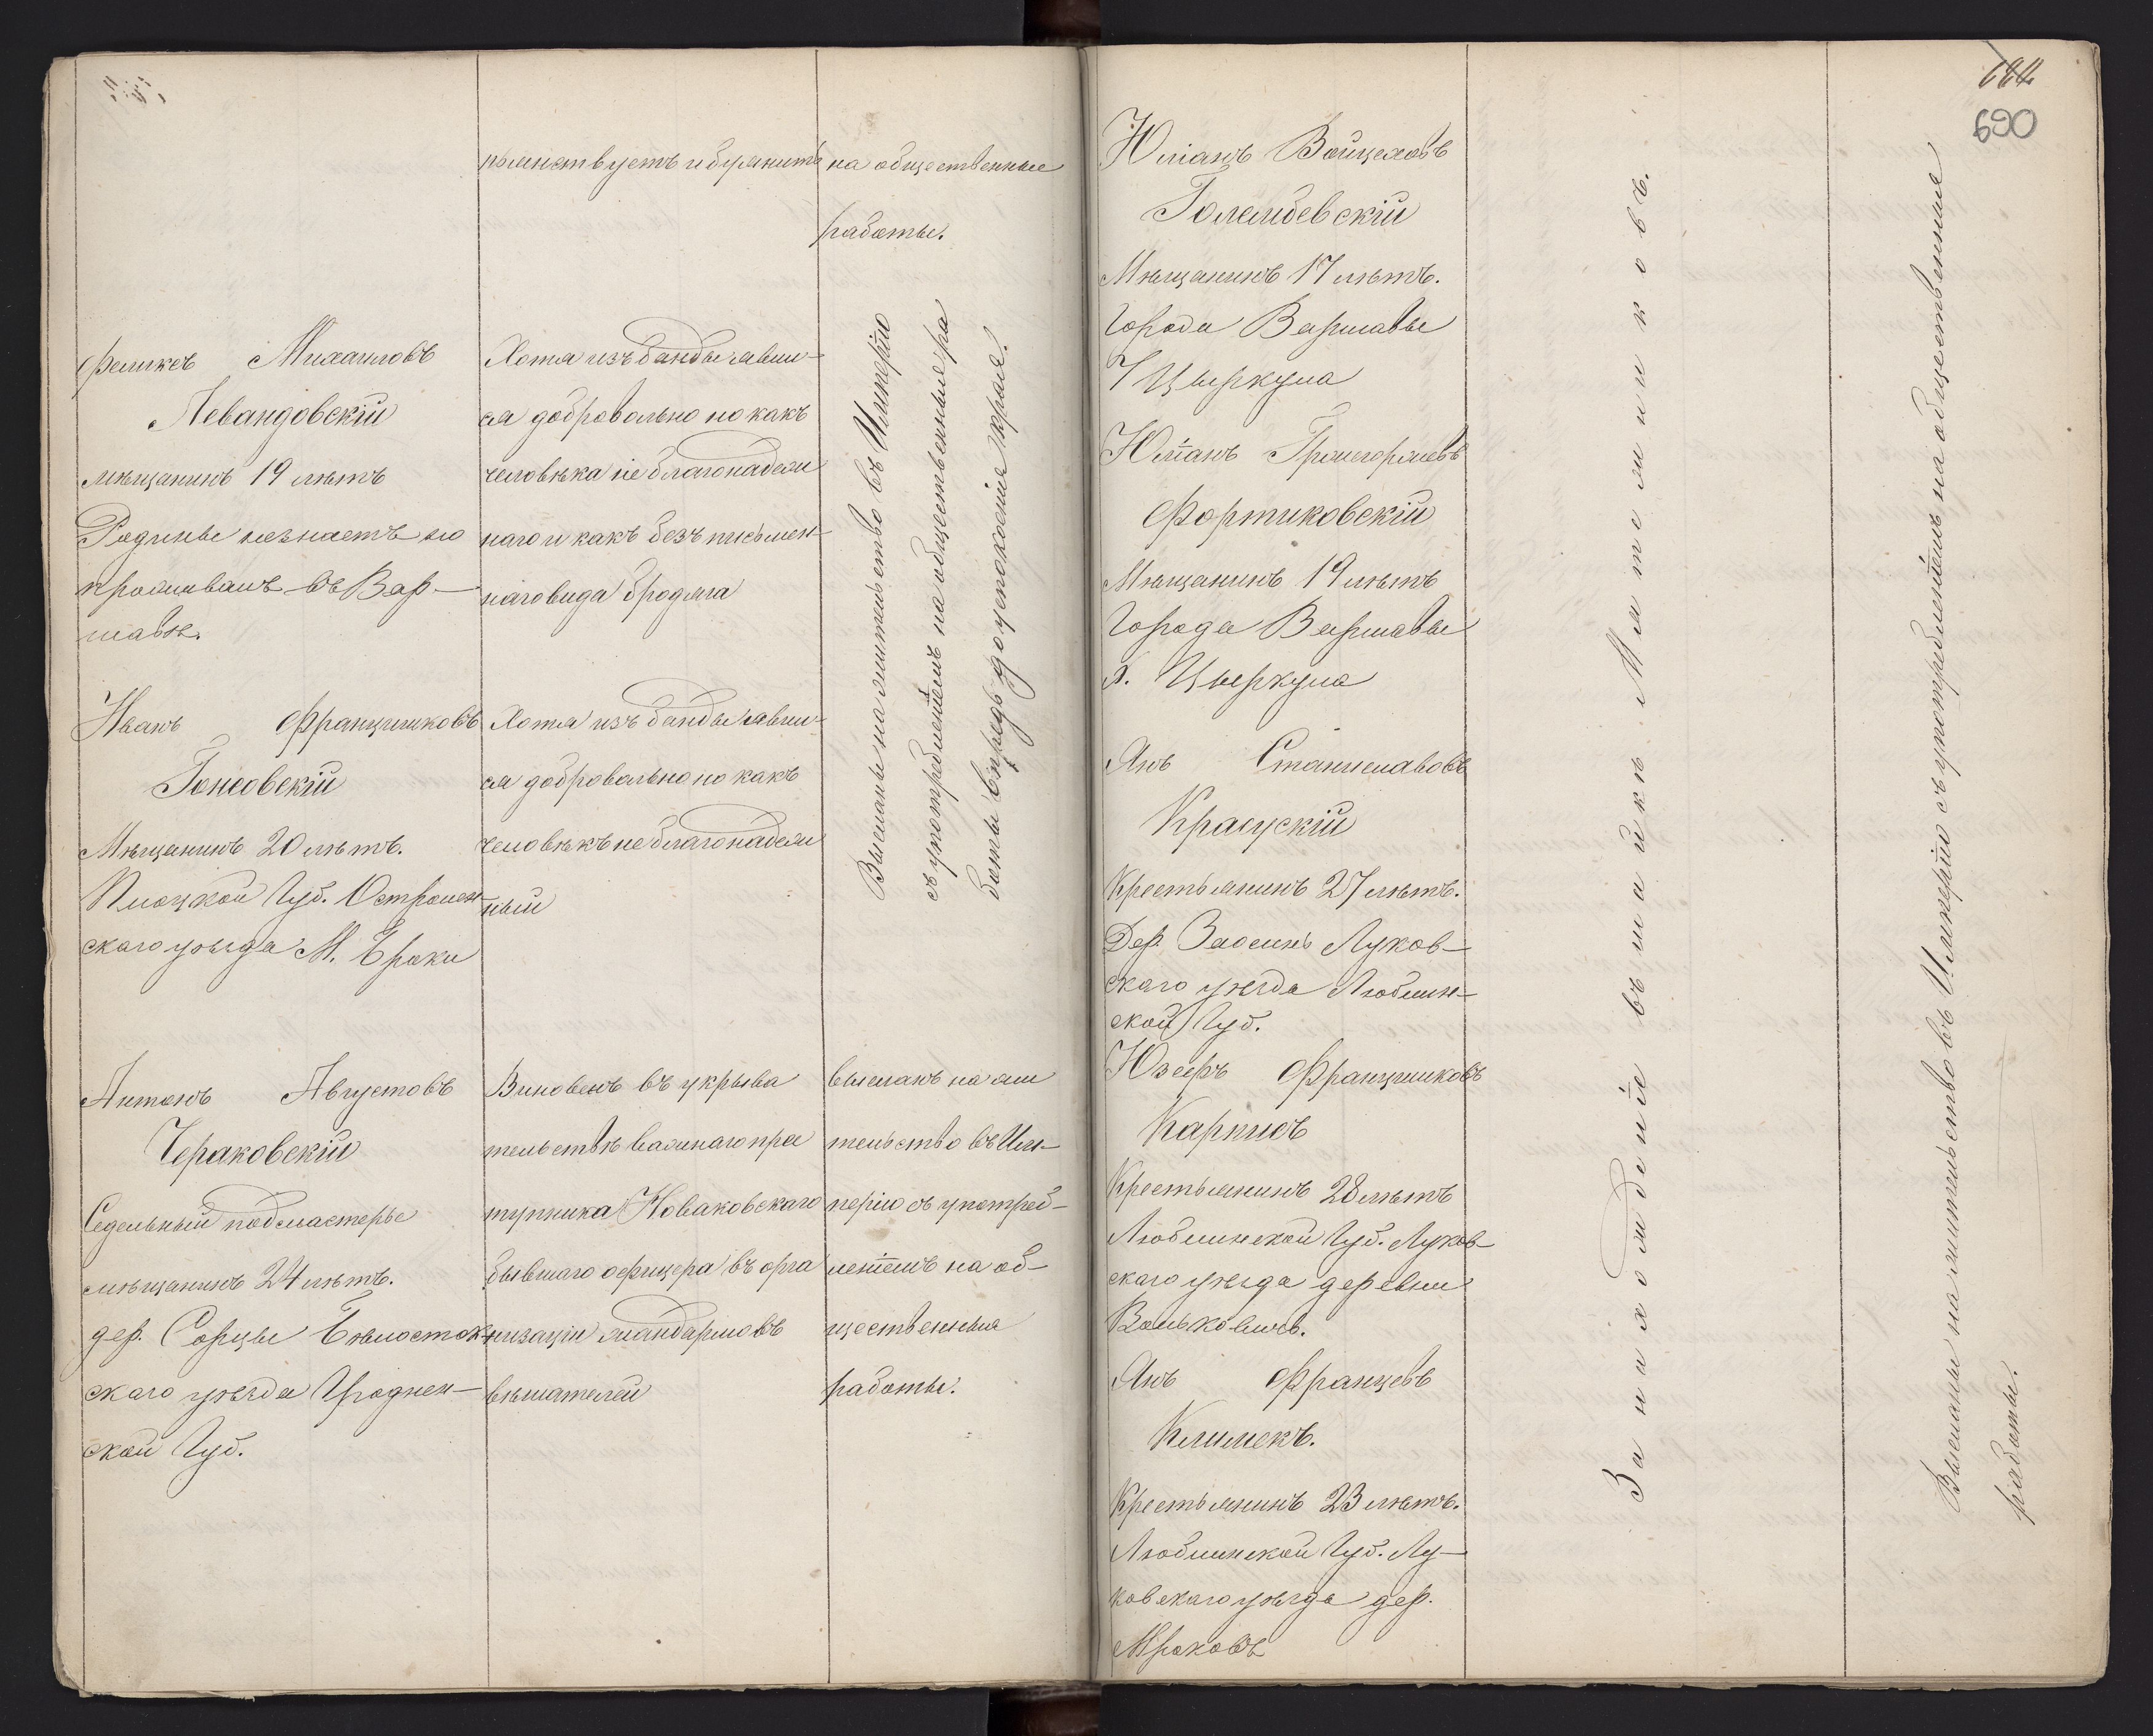 пьянствуетъ и буянитъ
на общественные
работы.
Феликсъ Михаиловъ
Левандовскій
мѣщанинъ 19 лѣтъ
Родины незнаетъ но
проживалъ въ Вар-
шавѣ.
Хотя изъ банды явил-
ся добровольно но какъ
человѣка не благонадеж
наго и какъ безъ письмен-
наго вида бродяга
Иванъ Францишковъ
Гонсовскій
Мѣщанинъ 20 лѣтъ.
Плоцкой Губ. Остролен-
скаго уѣзда М. Броки
Хотя изъ банды явил-
ся добровольно но какъ
человѣкъ не благонадеж
ный
Высланы на жительство въ Имперію
съ употребленіемъ на общественныя ра
боты впредь до успокоенія края.
Антонъ Августовъ
Чераковскій
Седельный подмастерье
мѣщанинъ 24 лѣтъ.
дер. Сорцы Бѣлосток-
скаго уѣзда Гроднен-
ской Губ.
Виновенъ въ укрыва
тельствѣ важнаго пре
тупника Новаковскаго
бывшаго офицера въ орга
низаціи жандармовъ
вѣшателей
высланъ на жи
тельство въ Им-
перію съ употреб-
леніемъ на об-
щественныя
работы.
684
690
Юліанъ Войцеховъ
Голембевскій
Мѣщанинъ 17 лѣтъ.
Города Варшавы
7 Цыркула
Юліанъ Григорьевъ
Фортиковскій
Мѣщанинъ 19 лѣтъ
Города Варшавы
X. Цыркула
Янъ Станиславовъ
Красускій
Крестьянинъ 27 лѣтъ.
Дер. Луков-
скаго уѣзда Люблин-
ской Губ.
Юзефъ Францишковъ
Карписъ
Крестьянинъ 28 лѣтъ
Люблинской Губ. Луков-
скаго уѣзда деревни
Янъ Францевъ
Климекъ.
Крестьянинъ 23 лѣтъ.
Люблинской Губ. Лу-
ковскаго уѣзда дер.
Мроковъ
За нахожденіе въ шайкѣ Мятежниковъ.
Высланы на жительство въ Имперію съ употребленіемъ на общественныя
работы.